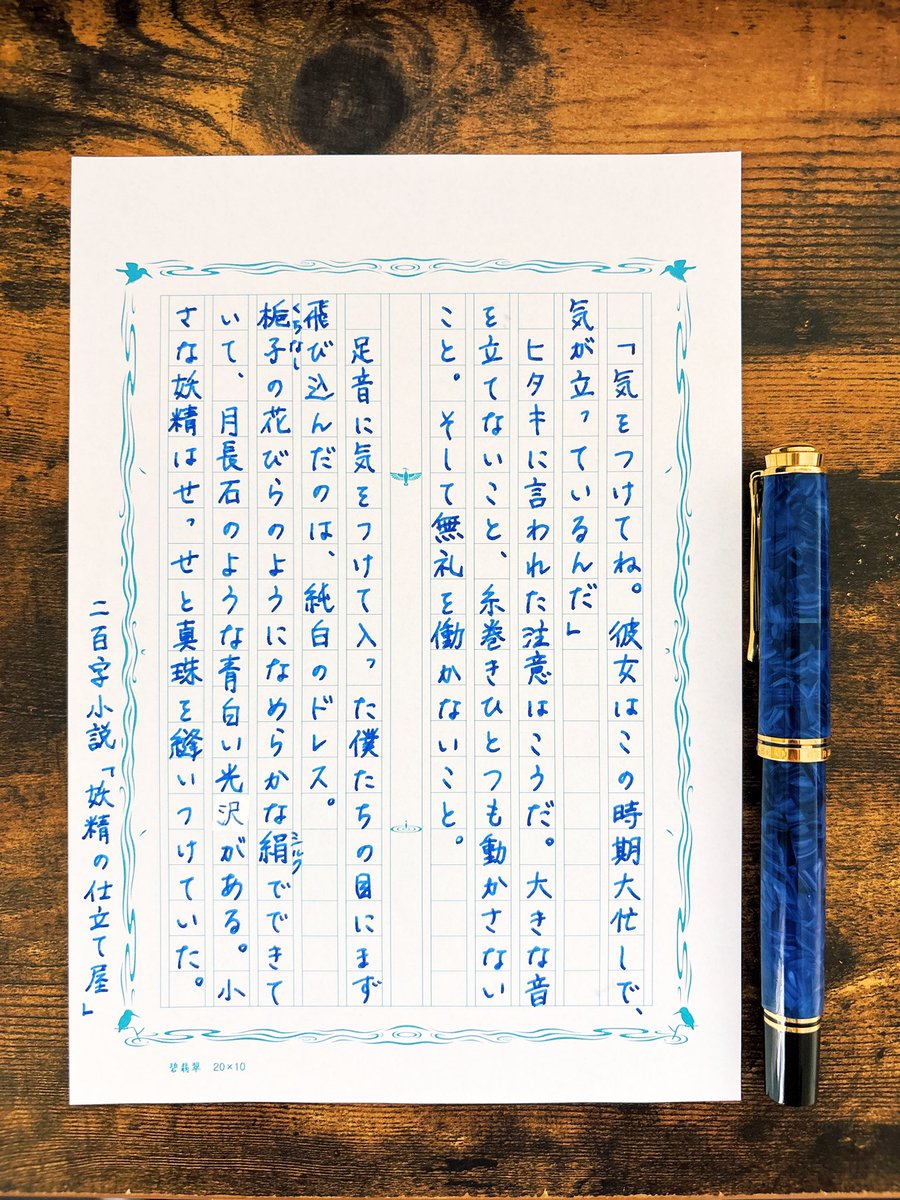 「気をつけてね。彼女はこの時期大忙しで、
気が立っているんだ」
ヒタキに言われた注意はこうだ。大きな音
を立てないこと、糸巻きひとつも動かさない
こと。そして無礼を働かないこと。
足音に気をつけて入った僕たちの目にまず
飛び込んだのは、純白のドレス。
くちなし
梔子の花びらのようになめらかな絹でできて
シルク
いて、月長石のような青白い光沢がある。小
さな妖精はせっせと真珠を縫いつけていた。
二百字小説「妖精の仕立て屋」
碧翡翠 20×10